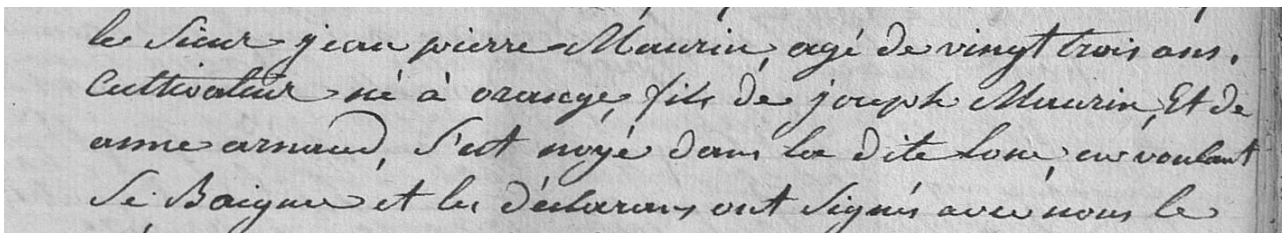 le sieur jean pierre Maurin, agé de vingt trois ans,
Cultivateur né à orange, fils de joseph Maurin, Et de
anne arnaud, s'est noyé dans la dite lone, en voulant
se Baigner et les déclarans ont signés avec nous le